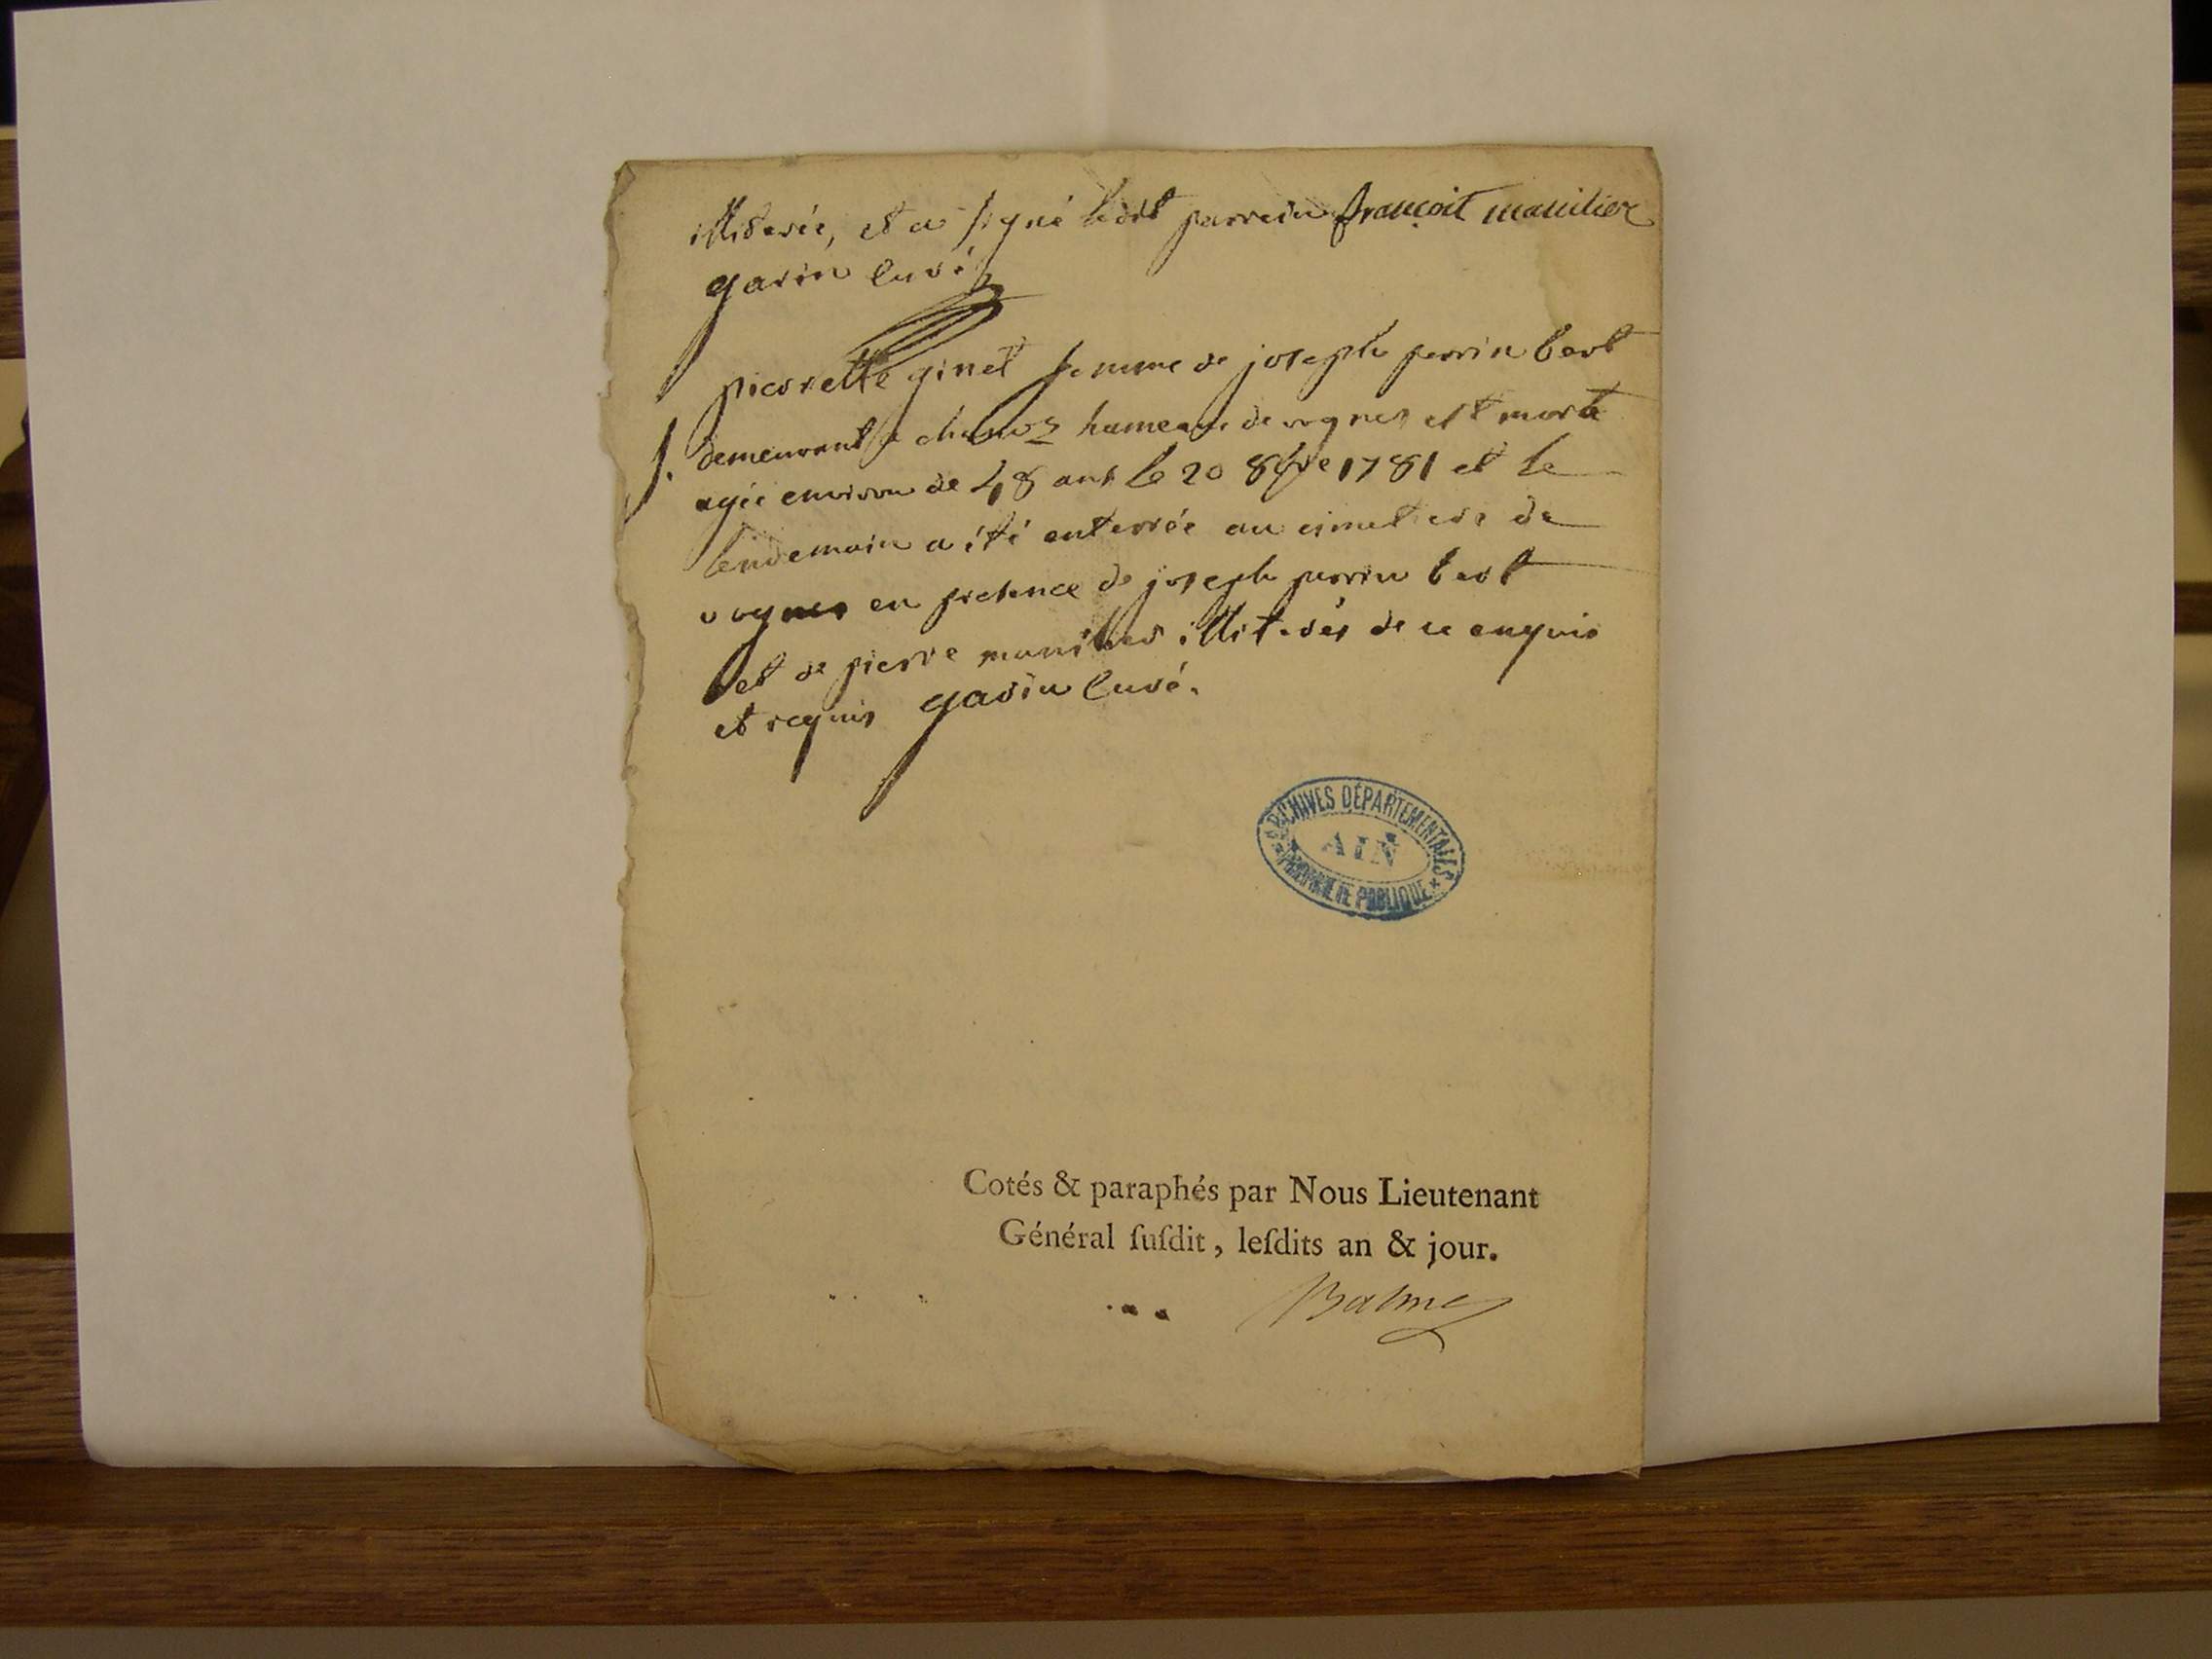 illiterée, et a signé ledit parrein françoit manilier
garin curé
pierrette ginet femme de joseph perrin bert
s. demeurant a hameau de vognes est morte
agée environ de 48 ans le 20 8bre 1781 et le
lendemain a été enterrée au cimetiere de
vognes en presence de joseph perrin bert
et de pierre manilier illiterés de ce enquis
et requis garin curé.
ARCHIVES DÉPARTEMENTALES
AIN
PROPRIÉTÉ PUBLIQUE
Cotés & paraphés par Nous Lieutenant
Général ſuſdit, leſdits an & jour.
Balme